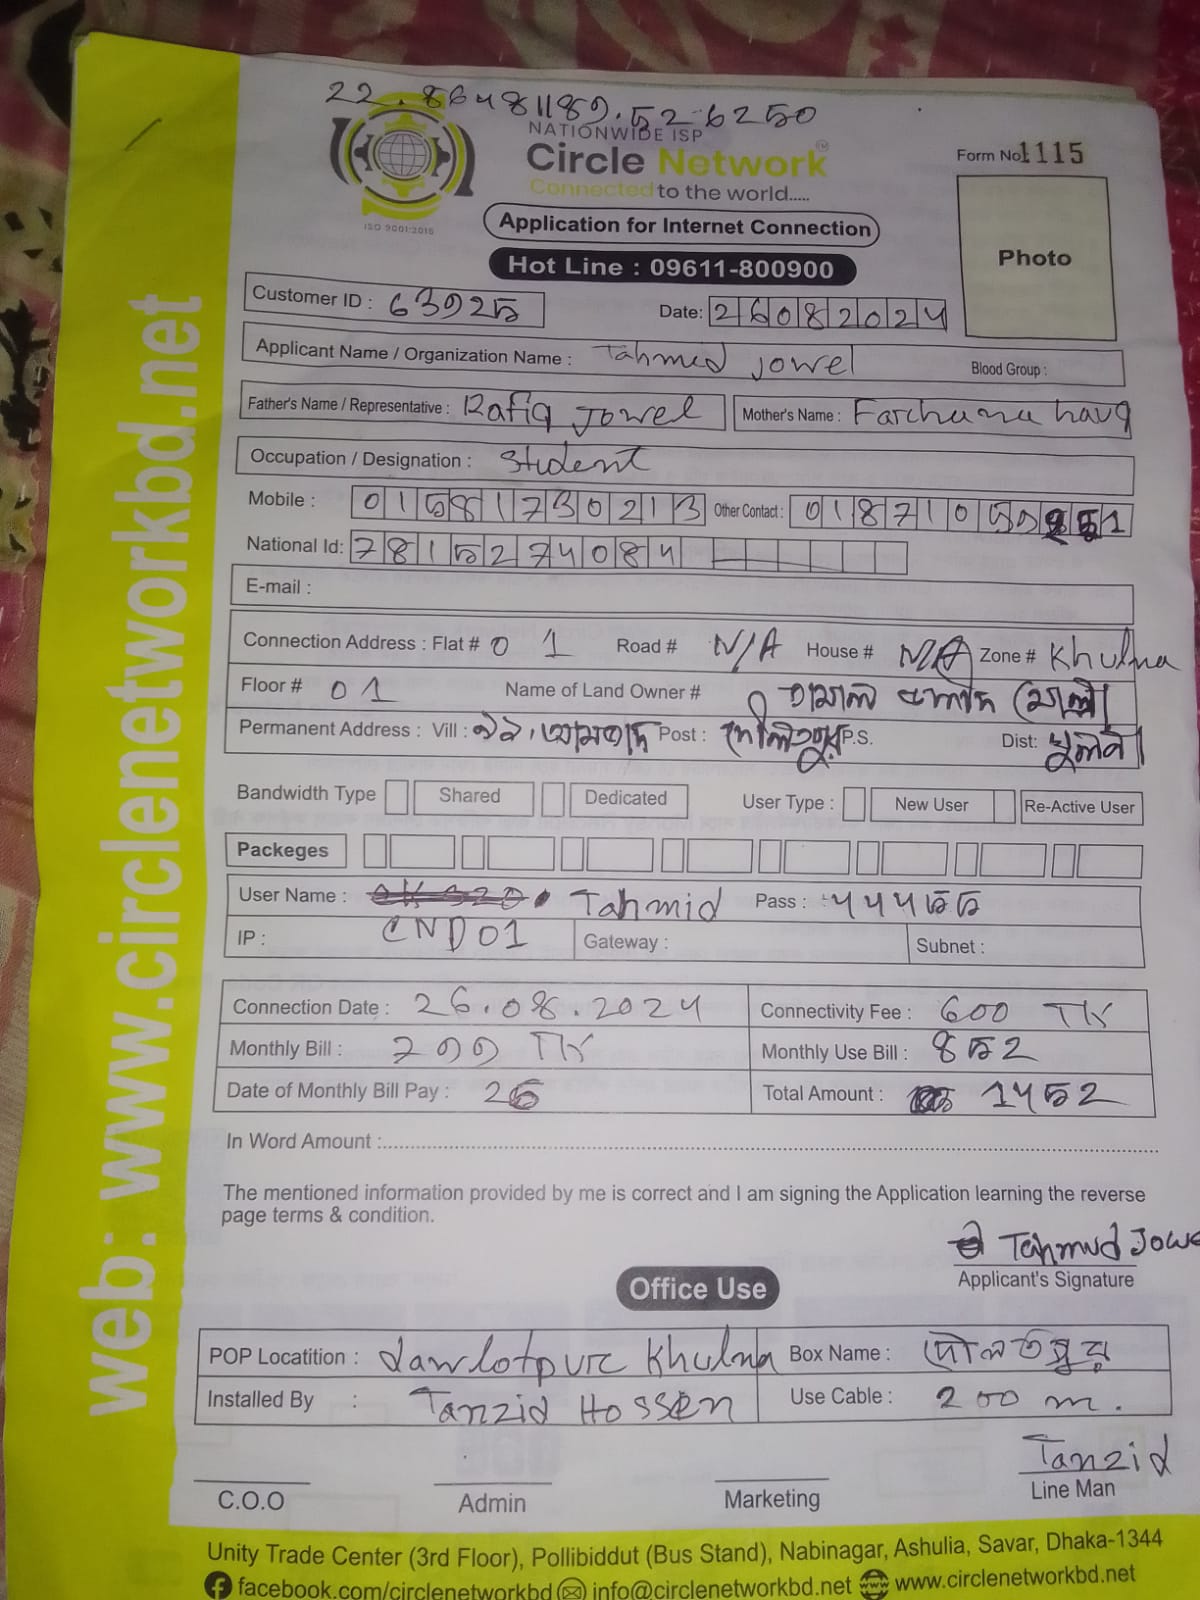 22.86481189.526250
NATIONWIDE ISP
Circle Network
Connected to the world.....
ISO 9001:2015
Form No 1115
Photo
Application for Internet Connection
Hot Line : 09611-800900
Customer ID : 63925
Date: 26082024
Applicant Name / Organization Name : Tahmed Jowel Blood Group :
Father's Name / Representative : Rafiq Jowel Mother's Name : Farchana hauq
Occupation / Designation : Student
Mobile : 01581730213 Other Contact : 018710
National Id: 7815274084
E-mail :
Connection Address : Flat # 01 Road # N/A House # N/A Zone # Khulna
Floor # 01 Name of Land Owner #
Permanent Address : Vill : Post : দৌলতপুর P.S. Dist:
Bandwidth Type Shared Dedicated User Type : New User Re-Active User
Packeges
User Name : Tahmid Pass : ৭৭৭৫৫
IP : CND01 Gateway : Subnet :
Connection Date : 26.08.2024 Connectivity Fee : 600 TK
Monthly Bill : 799 TK Monthly Use Bill : 852
Date of Monthly Bill Pay : 26 Total Amount : 1452
In Word Amount :
The mentioned information provided by me is correct and I am signing the Application learning the reverse
page terms & condition.
Tahmid Jowe
Applicant's Signature
Office Use
POP Locatition : dawlotpur Khulna Box Name : দৌলতপুর
Installed By : Tanzid Hossen Use Cable : 200 m.
Tanzid
C.O.O Admin Marketing Line Man
Unity Trade Center (3rd Floor), Pollibiddut (Bus Stand), Nabinagar, Ashulia, Savar, Dhaka-1344
facebook.com/circlenetworkbd info@circlenetworkbd.net www.circlenetworkbd.net
web: www.circlenetworkbd.net